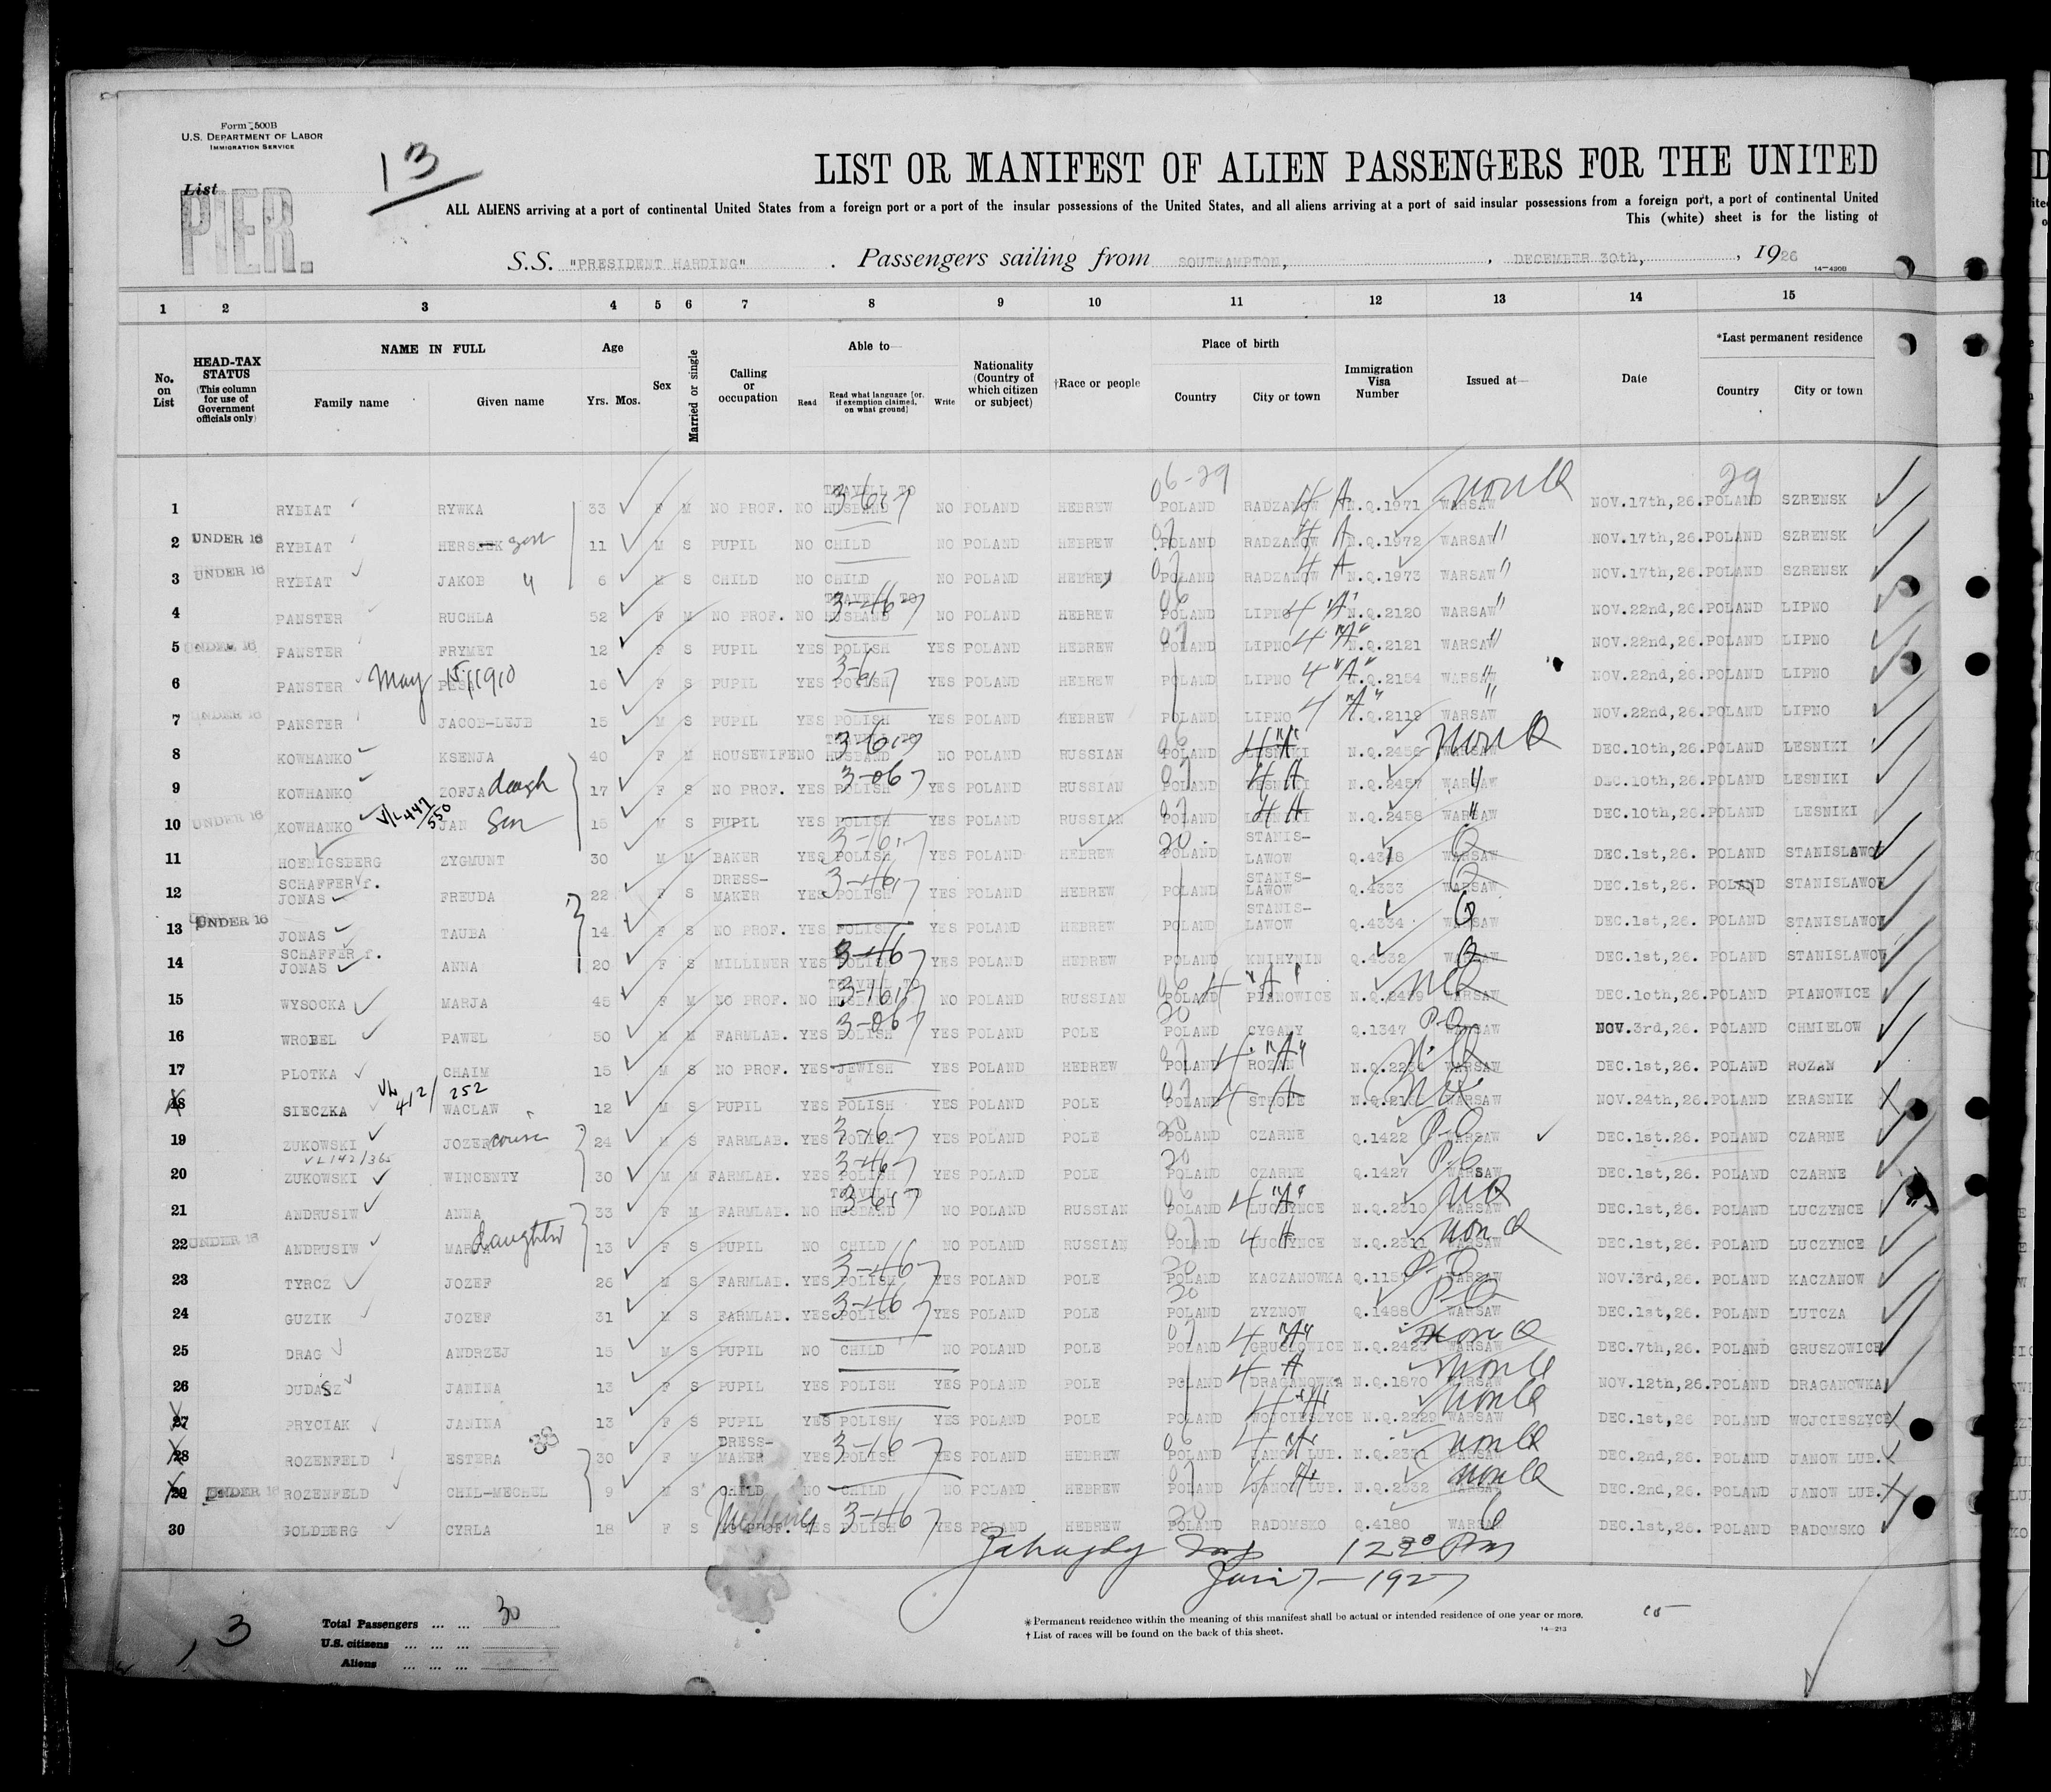 Form 500B
U.S. DEPARTMENT OF LABOR
IMMIGRATION SERVICE
List
PIER.
13
LIST OR MANIFEST OF ALIEN PASSENGERS FOR THE UNITED
ALL ALIENS arriving at a port of continental United States from a foreign port or a port of the insular possessions of the United States, and all aliens arriving at a port of said insular possessions from a foreign port, a port of continental United
This (white) sheet is for the listing of
S.S. "PRESIDENT HARDING" . Passengers sailing from SOUTHAMPTON, , DECEMBER 30th, , 1926
14—430B
1 2 3 4 5 6 7 8 9 10 11 12 13 14 15
No. on List
HEAD-TAX STATUS (This column for use of Government officials only)
NAME IN FULL Family name Given name
Age Yrs. Mos.
Sex
Married or single
Calling or occupation
Able to— Read Read what language [or, if exemption claimed, on what ground] Write
Nationality (Country of which citizen or subject)
†Race or people
Place of birth Country City or town
Immigration Visa Number
Issued at—
Date
*Last permanent residence Country City or town
06-29 29
1 RYBIAT RYWKA 33 F M NO PROF. NO TRAVELL TO HUSBAND NO POLAND HEBREW POLAND RADZANOW N.Q.1971 WARSAW NOV.17th,26. POLAND SZRENSK
2 UNDER 16 RYBIAT 11 M S PUPIL NO CHILD NO POLAND HEBREW POLAND RADZANOW N.Q.1972 WARSAW NOV.17th,26. POLAND SZRENSK
3 UNDER 16 RYBIAT JAKOB 6 M S CHILD NO CHILD NO POLAND HEBREW POLAND RADZANOW N.Q.1973 WARSAW NOV.17th,26. POLAND SZRENSK
4 PANSTER RUCHLA 52 F M NO PROF. NO TRAVELL TO HUSBAND NO POLAND HEBREW POLAND LIPNO 4 "A" N.Q.2120 WARSAW NOV.22nd,26. POLAND LIPNO
5 UNDER 16 PANSTER FRYMET 12 F S PUPIL YES POLISH YES POLAND HEBREW POLAND LIPNO 4 "A" N.Q.2121 WARSAW NOV.22nd,26. POLAND LIPNO
6 PANSTER May 15/1910 16 F S PUPIL YES POLISH YES POLAND HEBREW POLAND LIPNO 4 "A" N.Q.2154 WARSAW NOV.22nd,26. POLAND LIPNO
7 UNDER 16 PANSTER JACOB-LEJB 15 M S PUPIL YES POLISH YES POLAND HEBREW POLAND LIPNO 4 "A" N.Q.2119 WARSAW NOV.22nd,26. POLAND LIPNO
8 KOWHANKO KSENJA 40 F M HOUSEWIFE NO TRAVELL TO HUSBAND NO POLAND RUSSIAN POLAND LESNIKI N.Q.2456 WARSAW DEC.10th,26. POLAND LESNIKI
9 KOWHANKO ZOFJA daugh 17 F S NO PROF. YES POLISH YES POLAND RUSSIAN POLAND LESNIKI N.Q.2457 WARSAW DEC.10th,26. POLAND LESNIKI
10 UNDER 16 KOWHANKO V/L 447/550 JAN Son 15 M S PUPIL YES POLISH YES POLAND RUSSIAN POLAND LESNIKI N.Q.2458 WARSAW DEC.10th,26. POLAND LESNIKI
11 HOENIGSBERG ZYGMUNT 30 M M BAKER YES POLISH YES POLAND HEBREW POLAND STANIS-LAWOW WARSAW DEC.1st,26. POLAND STANISLAWOW
12 SCHAFFER f. JONAS FREUDA 22 F S DRESS-MAKER YES POLISH YES POLAND HEBREW POLAND STANIS-LAWOW Q.4333 WARSAW DEC.1st,26. POLAND STANISLAWOW
13 UNDER 16 JONAS TAUBA 14 F S NO PROF. YES POLISH YES POLAND HEBREW POLAND STANIS-LAWOW Q.4334 WARSAW DEC.1st,26. POLAND STANISLAWOW
14 SCHAFFER f. JONAS ANNA 20 F S MILLINER YES POLISH YES POLAND HEBREW POLAND KNIHYNIN Q.4332 WARSAW DEC.1st,26. POLAND STANISLAWOW
15 WYSOCKA MARJA 45 F M NO PROF. NO TRAVELL TO HUSBAND NO POLAND RUSSIAN POLAND PIANOWICE WARSAW DEC.10th,26. POLAND PIANOWICE
16 WROBEL PAWEL 50 M M FARMLAB. YES POLISH YES POLAND POLE POLAND CYGANY Q.1347 WARSAW NOV.3rd,26. POLAND CHMIELOW
17 PLOTKA CHAIM 15 M S NO PROF. YES JEWISH YES POLAND HEBREW POLAND ROZAN WARSAW DEC.1st,26. POLAND ROZAN
18 SIECZKA V/L 412/252 WACLAW 12 M S PUPIL YES POLISH YES POLAND POLE POLAND WARSAW NOV.24th,26. POLAND KRASNIK
19 ZUKOWSKI JOZEF cousin 24 M S FARMLAB. YES POLISH YES POLAND POLE POLAND CZARNE Q.1422 WARSAW DEC.1st.26. POLAND CZARNE
20 ZUKOWSKI WINCENTY 30 M M FARMLAB. YES POLISH YES POLAND POLE POLAND CZARNE Q.1427 WARSAW DEC.1st,26. POLAND CZARNE
21 ANDRUSIW ANNA 33 F M FARMLAB. NO TRAVELL TO HUSBAND NO POLAND RUSSIAN POLAND LUCZYNCE N.Q.2310 WARSAW DEC.1st,26. POLAND LUCZYNCE
22 UNDER 16 ANDRUSIW MARJA daughter 13 F S PUPIL NO CHILD NO POLAND RUSSIAN POLAND LUCZYNCE N.Q.2311 WARSAW DEC.1st,26. POLAND LUCZYNCE
23 TYRCZ JOZEF 26 M S FARMLAB. YES POLISH YES POLAND POLE POLAND KACZANOWKA WARSAW NOV.3rd,26. POLAND KACZANOW
24 GUZIK JOZEF 31 M S FARMLAB. YES POLISH YES POLAND POLE POLAND ZYZNOW Q.1488 WARSAW DEC.1st,26. POLAND LUTCZA
25 DRAG ANDRZEJ 15 M S PUPIL NO CHILD NO POLAND POLE POLAND GRUSZOWICE N.Q.2423 WARSAW DEC.7th,26. POLAND GRUSZOWICE
26 DUDASZ JANINA 13 F S PUPIL YES POLISH YES POLAND POLE POLAND DRAGANOWKA N.Q.1870 WARSAW NOV.12th,26. POLAND DRAGANOWKA
27 PRYCIAK JANINA 13 F S PUPIL YES POLISH YES POLAND POLE POLAND WOJCIESZYCE N.Q.2229 WARSAW DEC.1st,26 POLAND WOJCIESZYCE
28 ROZENFELD ESTERA 30 F M DRESS-MAKER YES POLISH YES POLAND HEBREW POLAND JANOW LUB. N.Q.2331 WARSAW DEC.2nd,26. POLAND JANOW LUB.
29 UNDER 16 ROZENFELD CHIL-MECHEL 9 M S CHILD NO CHILD NO POLAND HEBREW POLAND JANOW LUB. N.Q.2332 WARSAW DEC.2nd,26. POLAND JANOW LUB.
30 GOLDBERG CYRLA 18 F S NO PROF. YES POLISH YES POLAND HEBREW POLAND RADOMSKO Q.4180 WARSAW DEC.1st,26. POLAND RADOMSKO
12 30 Pm
Jan 7 - 1927
Total Passengers ... ... 30
U.S. citizens ... ... ...
Aliens ... ... ...
13
* Permanent residence within the meaning of this manifest shall be actual or intended residence of one year or more.
† List of races will be found on the back of this sheet.
14—213